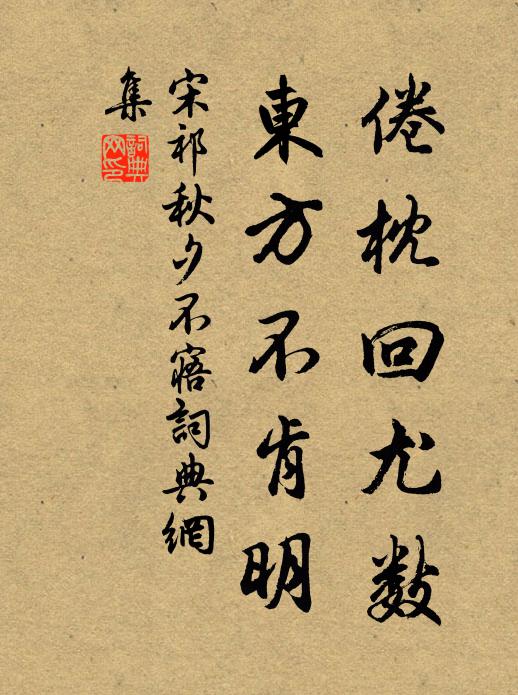 倦枕回尤数
東方不肯明
宋祁秋夕不寤詞典網
集
詞典网印